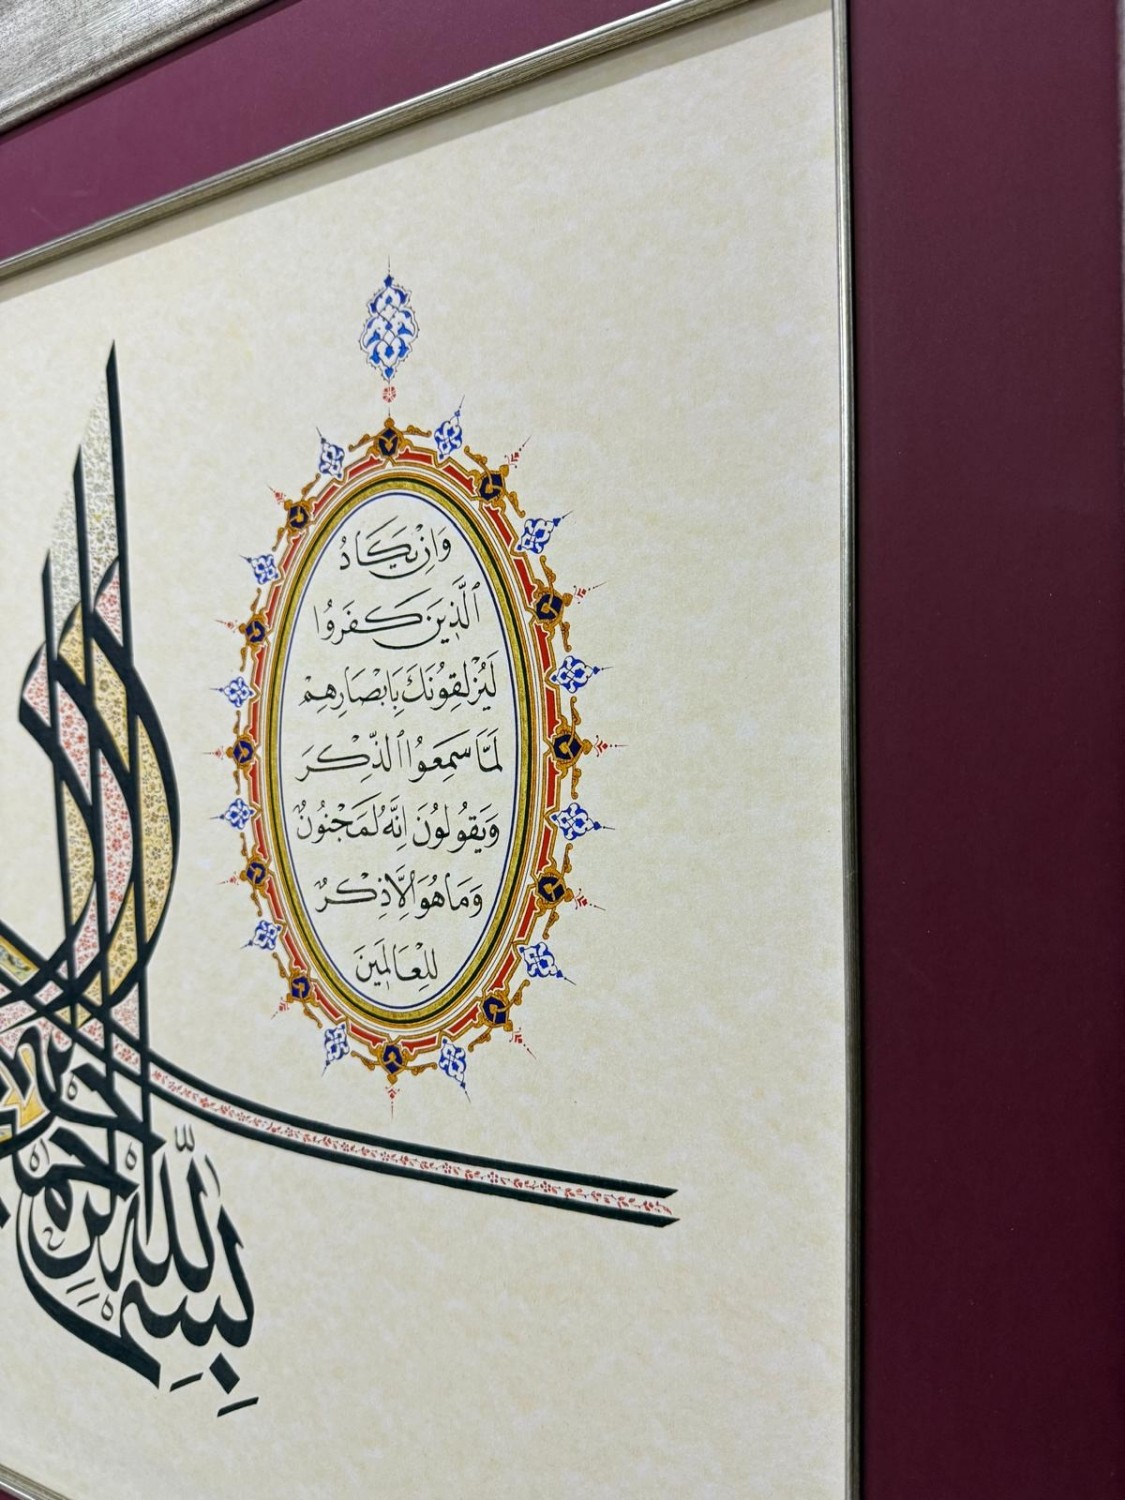 وَاِنْ يَكَادُ
الَّذِينَ كَفَرُوا
لَيُزْلِقُونَكَ بِاَبْصَارِهِمْ
لَمَّا سَمِعُوا الذِّكْرَ
وَيَقُولُونَ اِنَّهُ لَمَجْنُونٌ
وَمَا هُوَ اِلَّا ذِكْرٌ
لِلْعَالَمِينَ
بِسْمِ اللّٰهِ الرَّحْمٰنِ